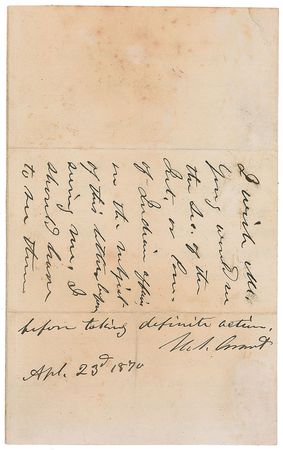 I wish Mr.
would see
the Sec. of the
Int. or Com.
of Indian affairs
on the subject
of this letter before
seeing me. I
should have
to see them
before taking definite action.
U.S. Grant
Apl. 23d 1870